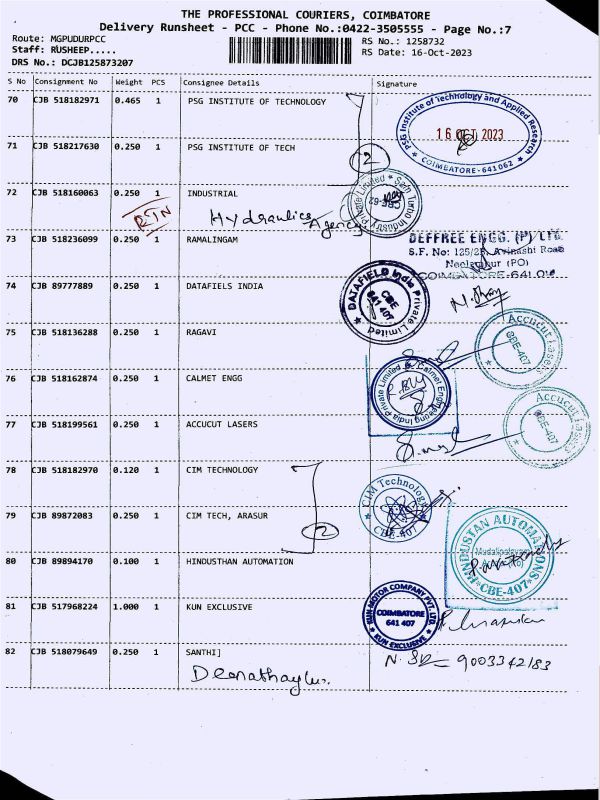 THE PROFESSIONAL COURIERS, COIMBATORE
Delivery Runsheet - PCC - Phone No.:0422-3505555 - Page No.:7
Route: MGPUDURPCC RS No.: 1258732
Staff: RUSHEEP..... RS Date: 16-Oct-2023
DRS No.: DCJB125873207
S No Consignment No Weight PCS Consignee Details Signature
70 CJB 518182971 0.465 1 PSG INSTITUTE OF TECHNOLOGY
PSG Institute of Technology and Applied Research
16 OCT 2023
COIMBATORE-641062
71 CJB 518217630 0.250 1 PSG INSTITUTE OF TECH
2
72 CJB 518160063 0.250 1 INDUSTRIAL
RTN
Hydraulics Agency
Industry Private Limited
CBE-62
73 CJB 518236099 0.250 1 RAMALINGAM
DEFFREE ENGG. (P) LTD.
S.F. No: 125/2B, Avinashi Road
Neelambur (PO)
COIMBATORE-641
74 CJB 89777889 0.250 1 DATAFIELS INDIA
DATAFIELD India Private Limited
CBE
641 407
75 CJB 518136288 0.250 1 RAGAVI
Accucut Lasers
CBE-407
76 CJB 518162874 0.250 1 CALMET ENGG
Calmet Engineering India Private Limited
77 CJB 518199561 0.250 1 ACCUCUT LASERS
Accucut Lasers
CBE-407
78 CJB 518182970 0.120 1 CIM TECHNOLOGY
CIM Technology
CBE-407
79 CJB 89872083 0.250 1 CIM TECH, ARASUR
2
80 CJB 89894170 0.100 1 HINDUSTHAN AUTOMATION
HINDUSTAN AUTOMATIONS
Mudalipalayam
CBE-407
81 CJB 517968224 1.000 1 KUN EXCLUSIVE
KUN MOTOR COMPANY PVT. LTD.
COIMBATORE
641 407
KUN EXCLUSIVE
82 CJB 518079649 0.250 1 SANTHI]
9003342183